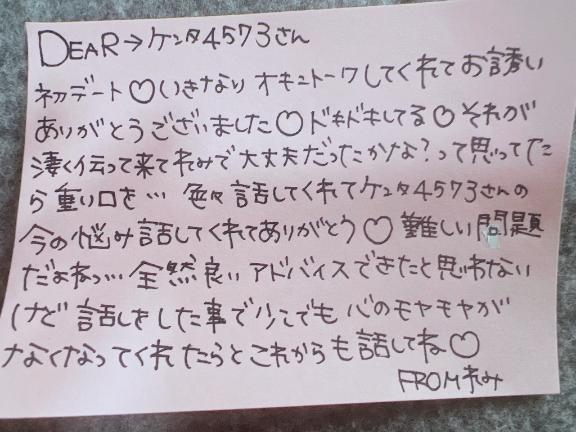 DEAR→ケンタ4573さん
初デート♡いきなりオキニトークしてくれてお誘い
ありがとうございました♡ドキドキしてる♡それが
凄く伝って来てれみで大丈夫だったかな?って思ってた
ら重い口を… 色々話してくれてケンタ4573さんの
今の悩み話してくれてありがとう♡難しい問題
だよねっ… 全然良いアドバイスできたと思わない
けど話しをした事で少こでも心のモヤモヤが
なくなってくれたらとこれからも話してね♡
FROMれみ